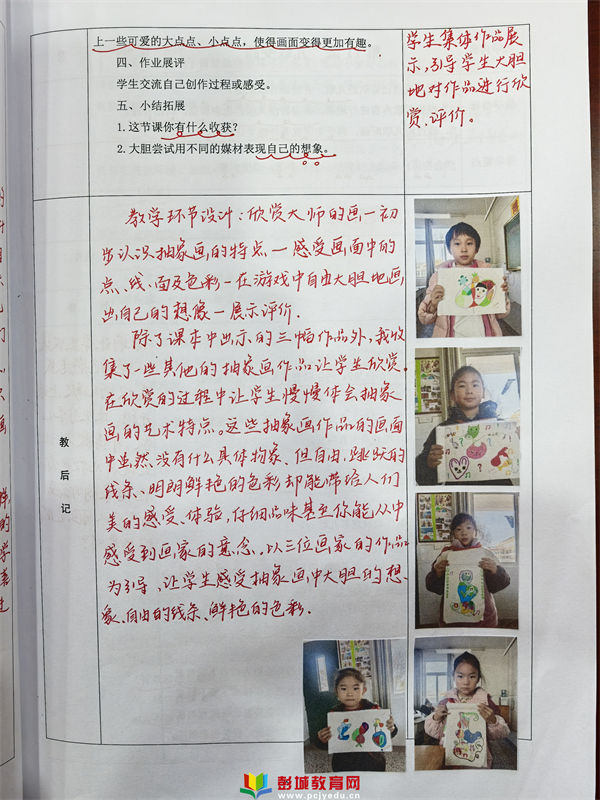 上一些可爱的大点点、小点点，使得画面变得更加有趣。
四、作业展评
学生交流自己创作过程或感受。
五、小结拓展
1.这节课你有什么收获？
2.大胆尝试用不同的媒材表现自己的想象。
学生集体作品展
示，引导学生大胆
地对作品进行欣
赏、评价。
教后记
教学环节设计：欣赏大师的画—初
步认识抽象画的特点—感受画面中的
点、线、面及色彩—在游戏中自由大胆地画
出自己的想像—展示评价.
除了课本中出示的三幅作品外，我收
集了一些其他的抽象画作品让学生欣赏。
在欣赏的过程中让学生慢慢体会抽象
画的艺术特点。这些抽象画作品的画面
中虽然没有什么具体物象、但自由、跳跃的
线条、明朗鲜艳的色彩却能带给人们
美的感受、体验，仔细品味甚至你能从中
感受到画家的意念。以三位画家的作品
为引导，让学生感受抽象画中大胆的想
象、自由的线条、鲜艳的色彩.
彭城教育网
www.pcjyedu.cn